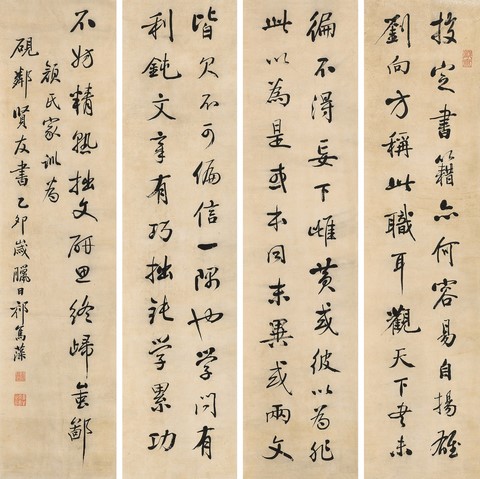 挍定書籍亦何容易自揚雄
劉向方稱此職耳觀天下書未
徧不得妄下雌黃或彼以為非
此以為是或本同末異或兩文
皆欠不可偏信一隅也学問有
利鈍文章有巧拙鈍学累功
不妨精熟拙文研思終歸蚩鄙
顏氏家訓為
硯鄰賢友書乙卯歲臘日祁寯藻